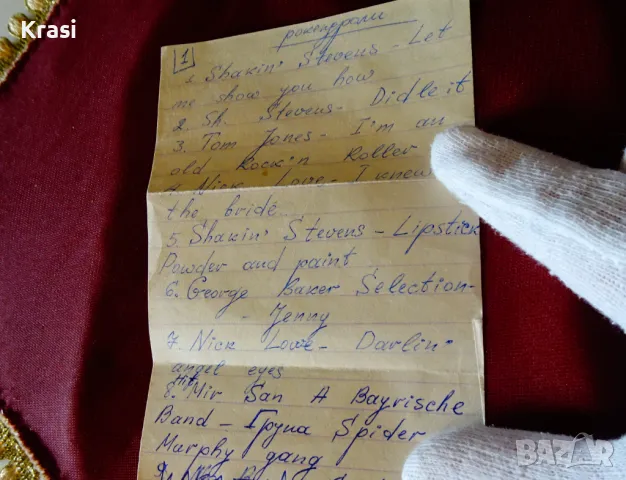 Krasi
рокендроли
1
1. Shakin' Stevens - Let
me show you how
2. Sh. Stevens - Didle it
3. Tom Jones - I'm an
old Rock'n Roller
4. Nick Lowe - I knew
the bride
5. Shakin' Stevens - Lipstick
Powder and paint
6. George Baker Selection -
- Jenny
7. Nick Lowe - Darlin'
angel eyes
8. Mir San A Bayrische
Band - Група Spider
Murphy gang
9.
BAZAR